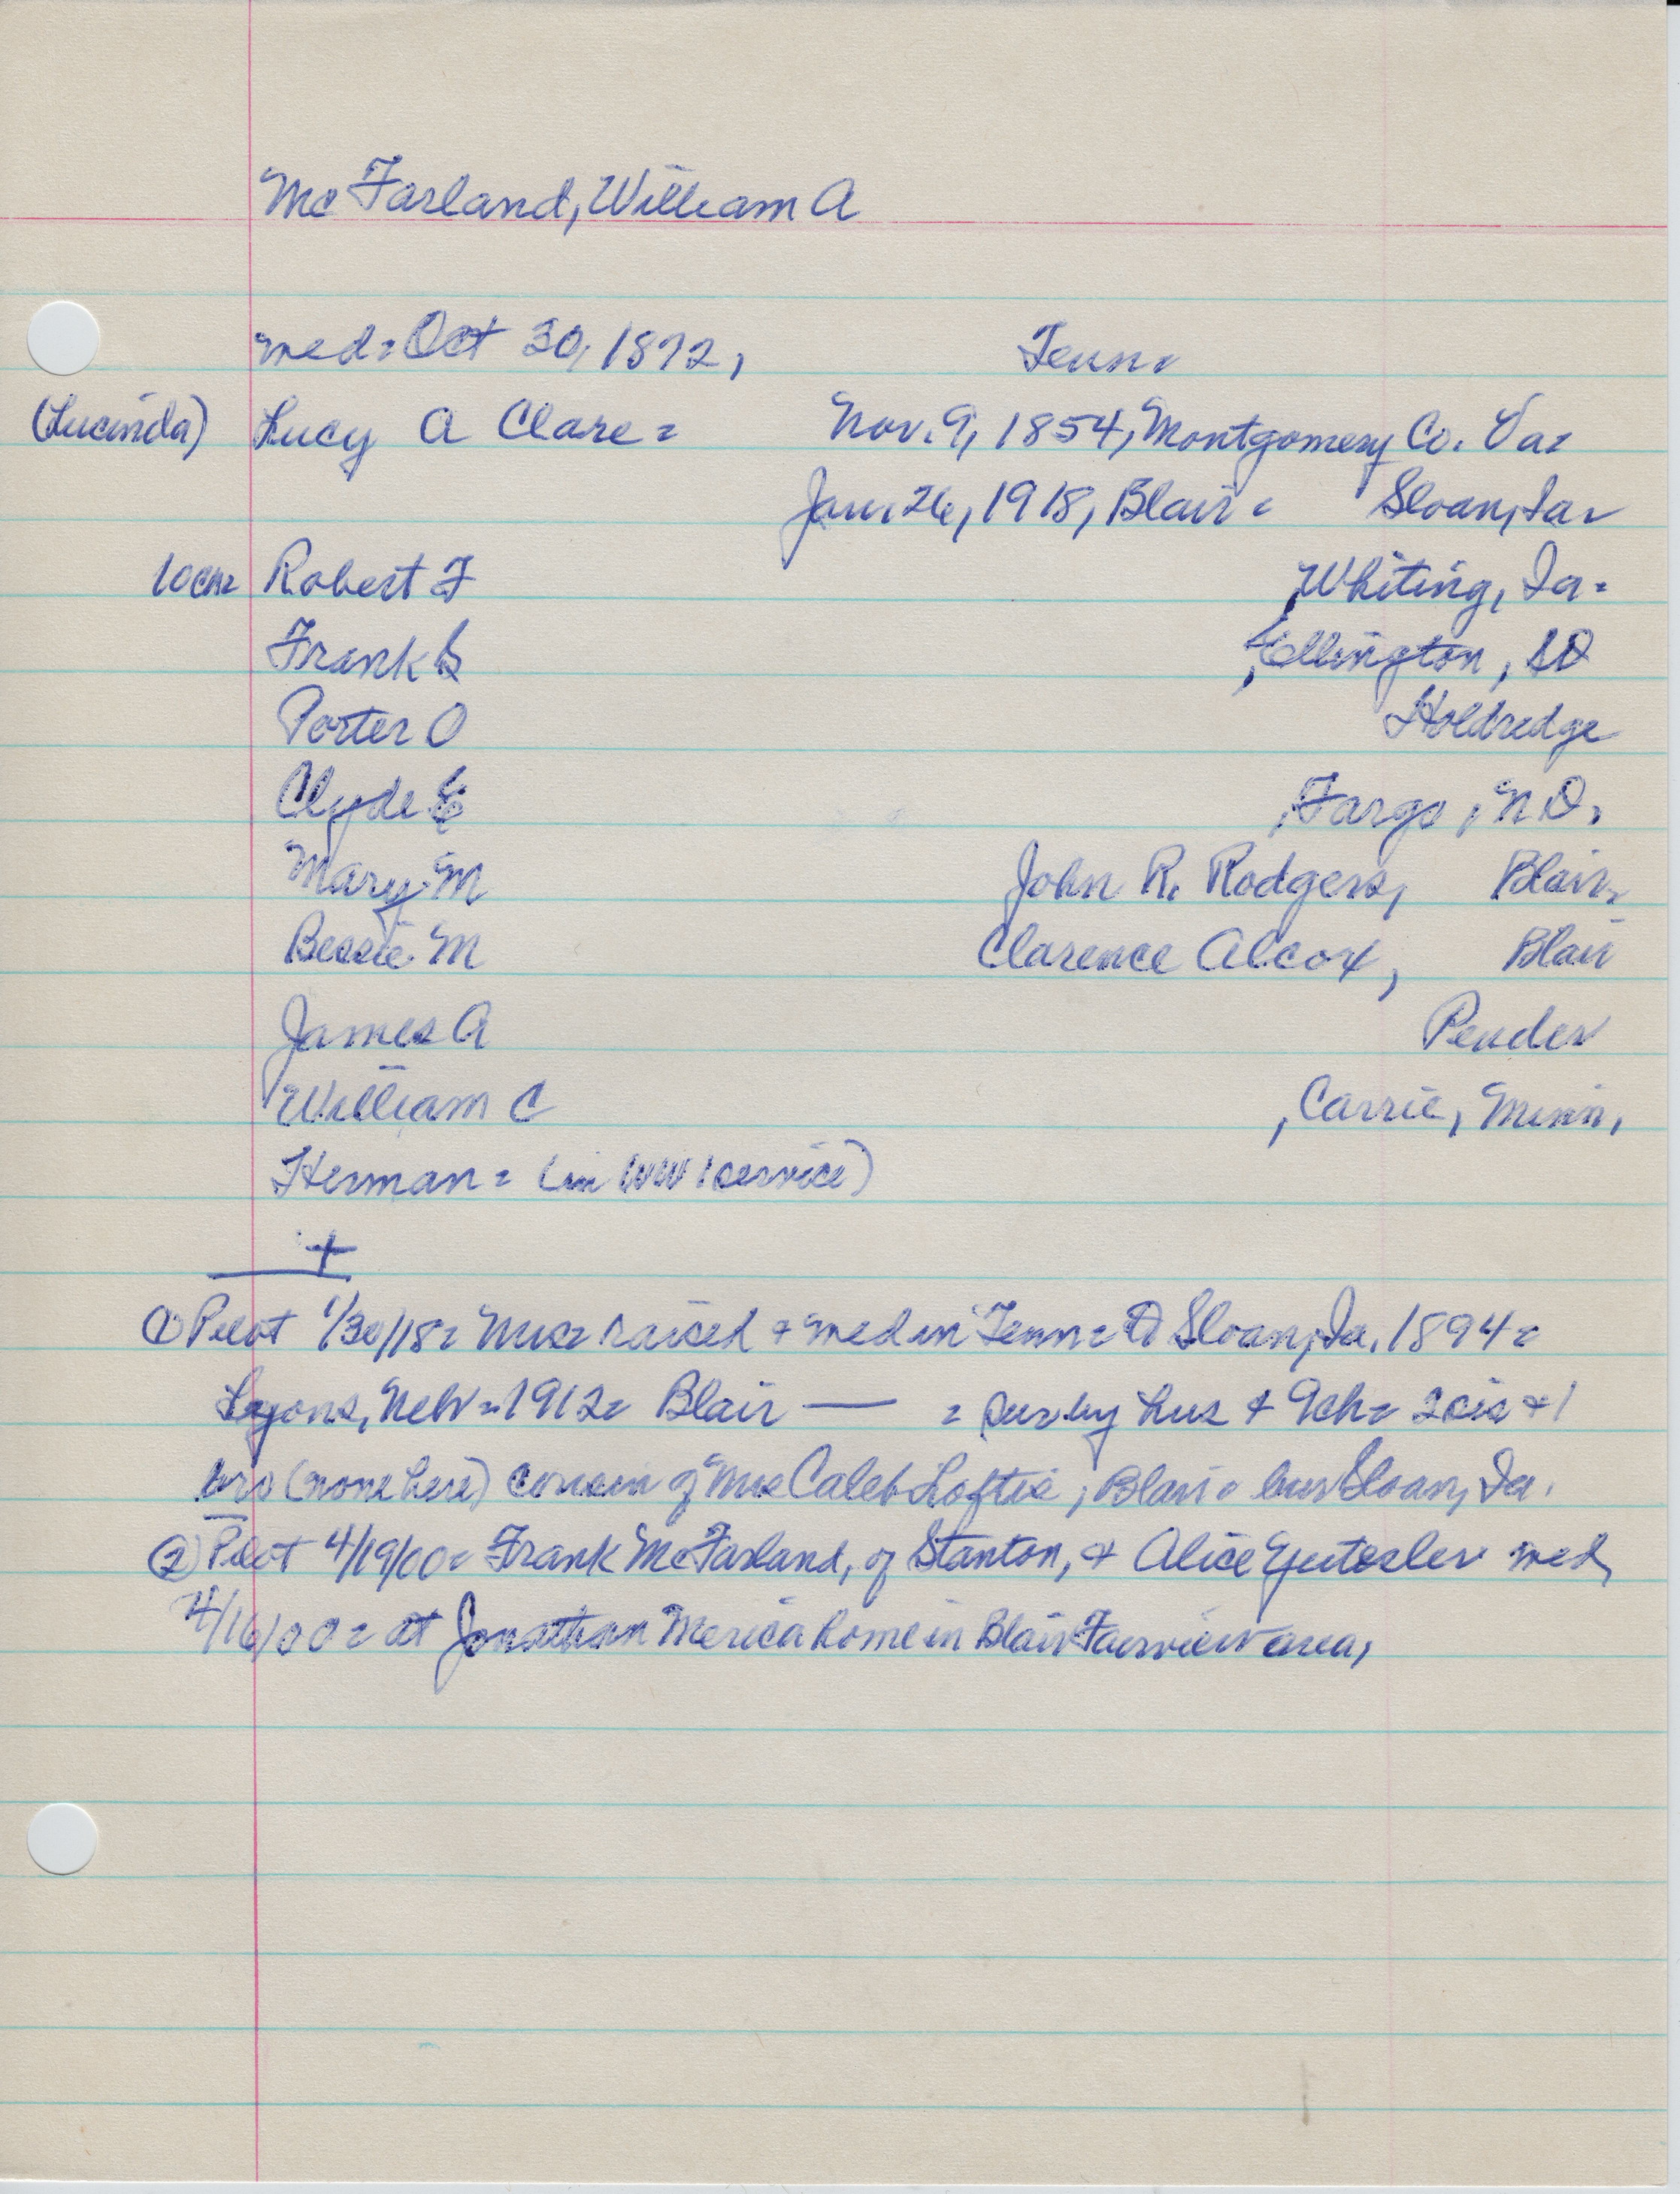 McFarland, William A
med = Oct 30, 1872, Tenn =
(Lucinda) Lucy A Clare = Nov. 9, 1854, Montgomery Co. Va =
Jan. 26, 1918, Blair = Sloan, Ia =
10 ch = Robert F , Whiting, Ia =
Frank S , Ellington, SD
Porter O Holdredge
Clyde E , Fargo, N.D.
Mary M John R. Rodgers, Blair,
Bessie M Clarence Alcox, Blair
James A Pender
William C , Carrie, Minn,
Herman = (in WW 1 service)
+
① Pilot 1/30/18 = Mrs = raised & med in Tenn = Sloan, Ia. 1894 =
Lyons, Neb = 1912 = Blair — = sur by hus & 9 ch = 2 sis & 1
bro (none here) cousin of Mrs Caleb Loftis, Blair = bur Sloan, Ia.
② Pilot 4/19/00 = Frank McFarland, of Stanton, & Alice med,
4/16/00 = at Jonathan Merica home in Blair Fairview area,